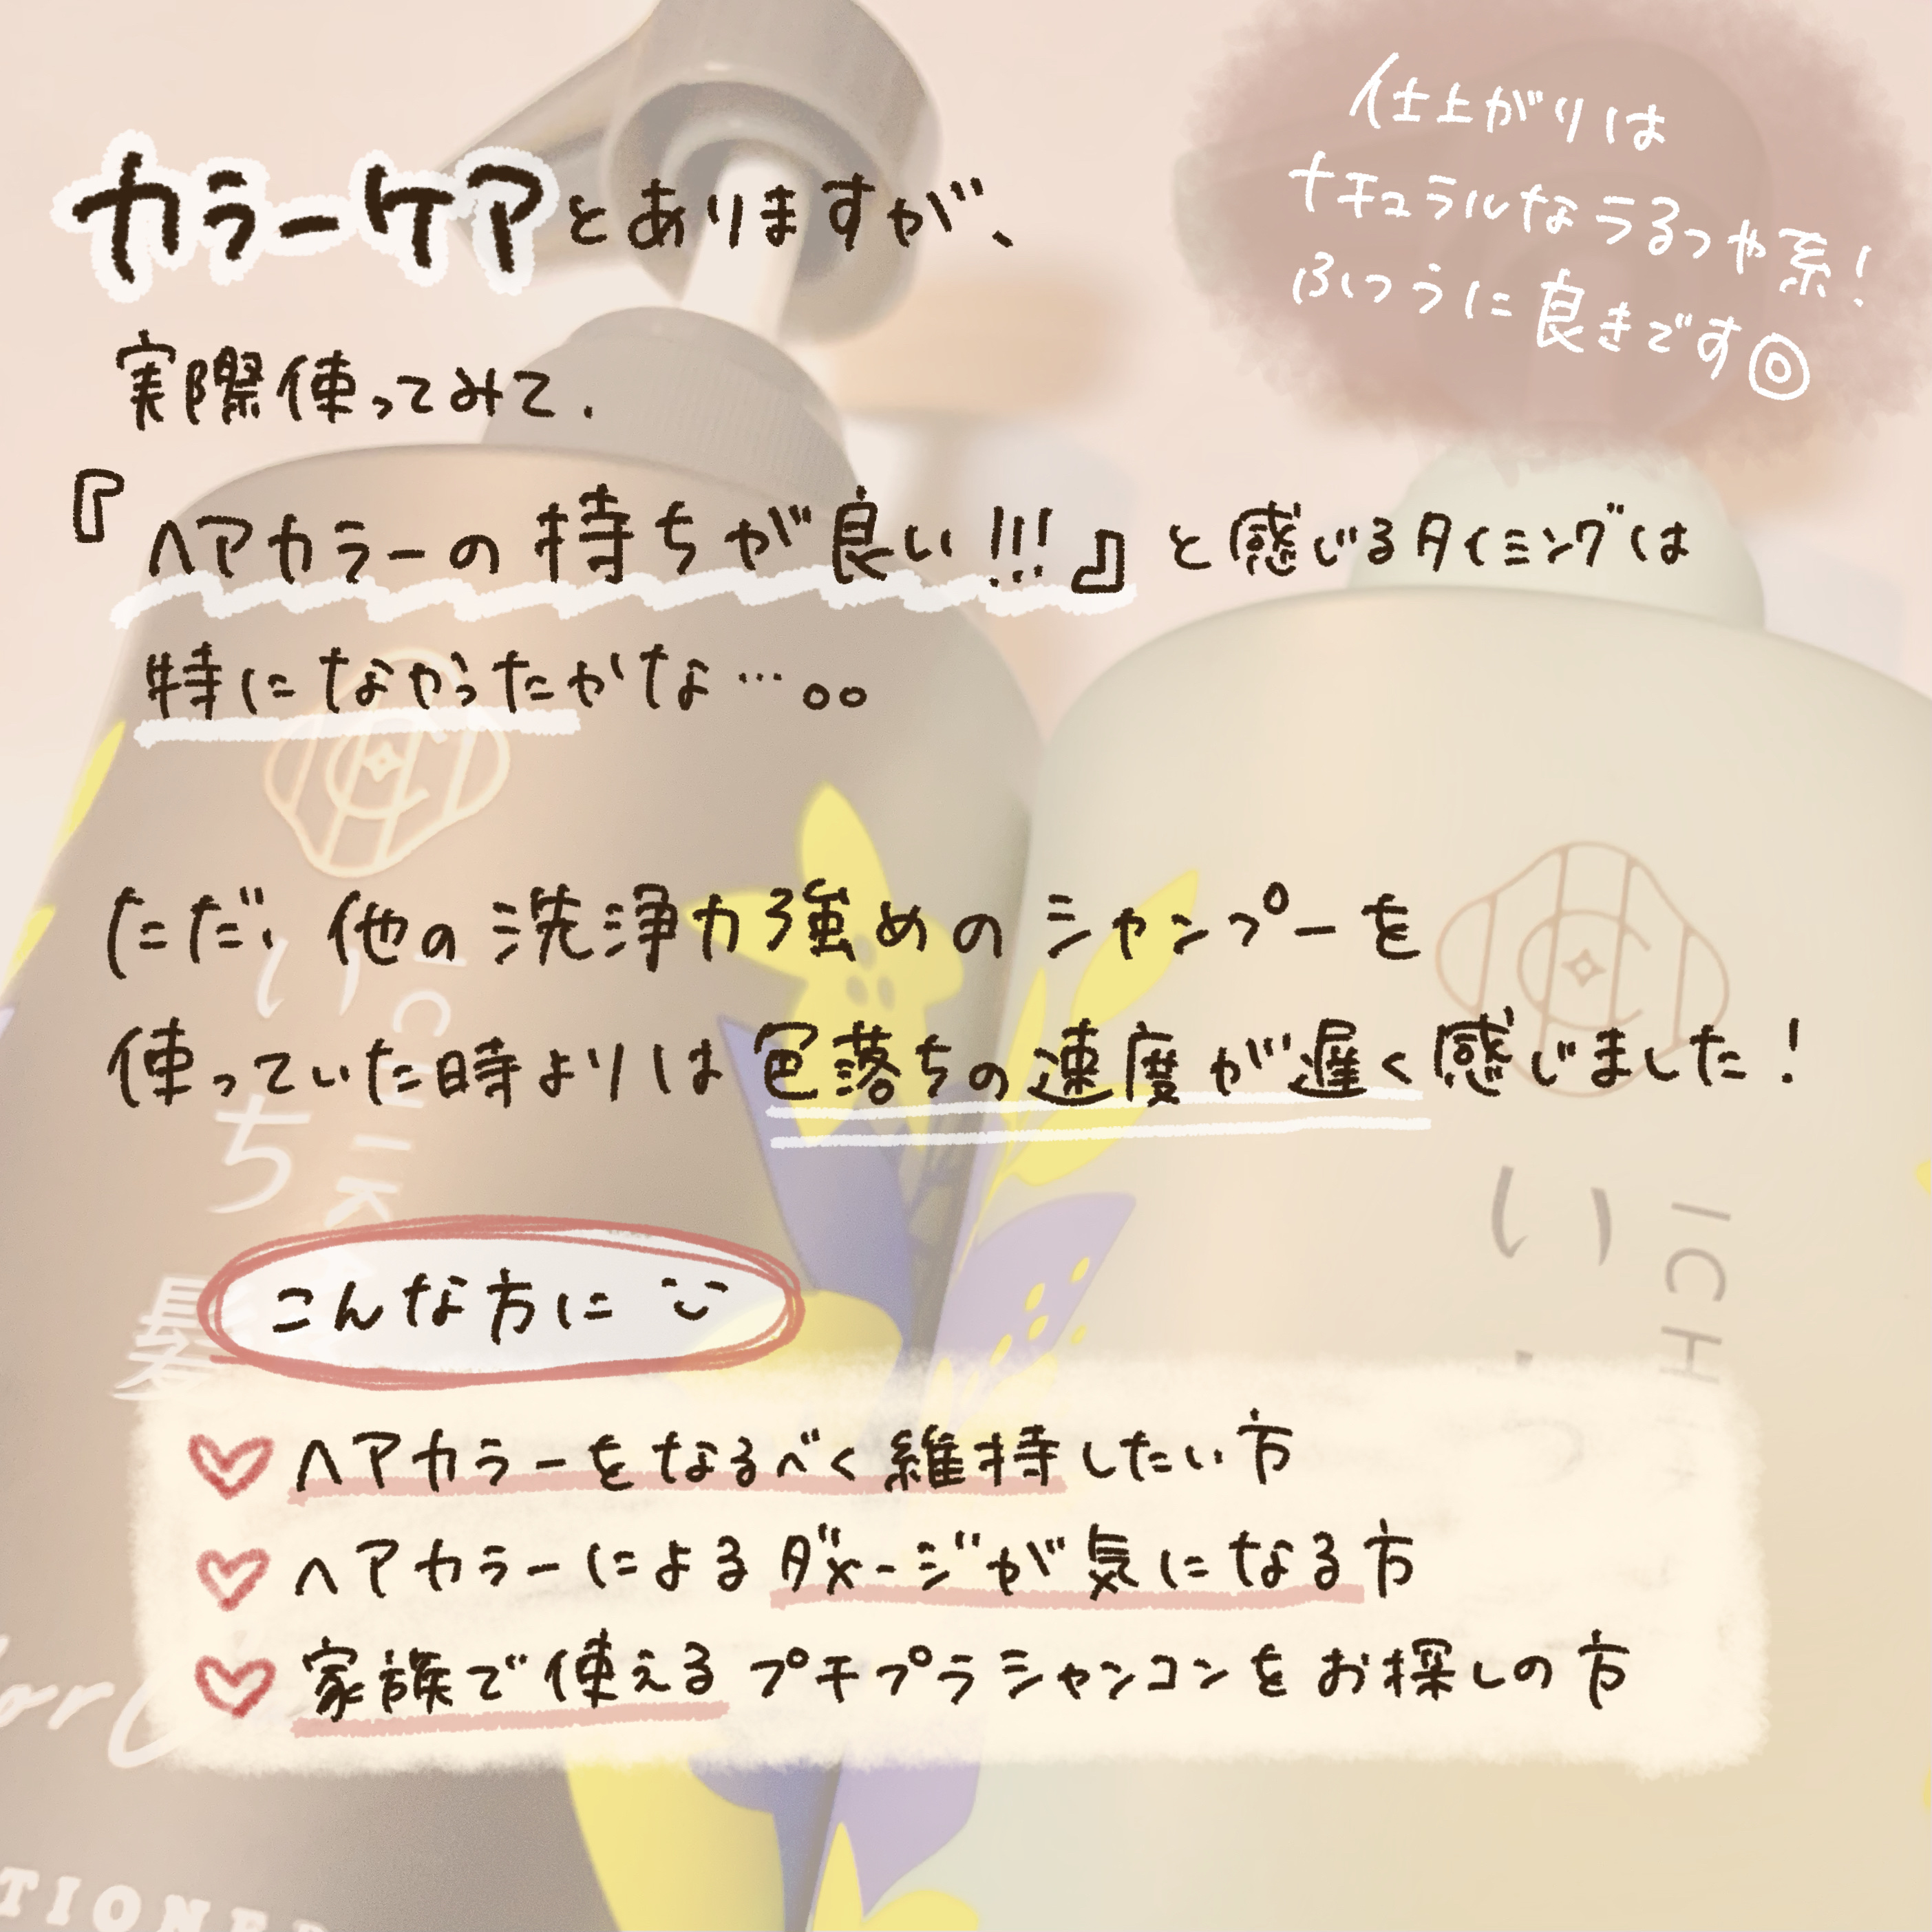 仕上がりは
ナチュラルなうるつや系!
ふつうに良きです◎
カラーケアとありますが、
実際使ってみて、
『ヘアカラーの持ちが良い!!!』と感じるタイミングは
特になかったかな…。。
ただ、他の洗浄力強めのシャンプーを
使っていた時よりは色落ちの速度が遅く感じました!
こんな方に
ヘアカラーをなるべく維持したい方
ヘアカラーによるダメージが気になる方
家族で使えるプチプラシャンコンをお探しの方
いち髪
ICHIK
い
ICH
TIONER